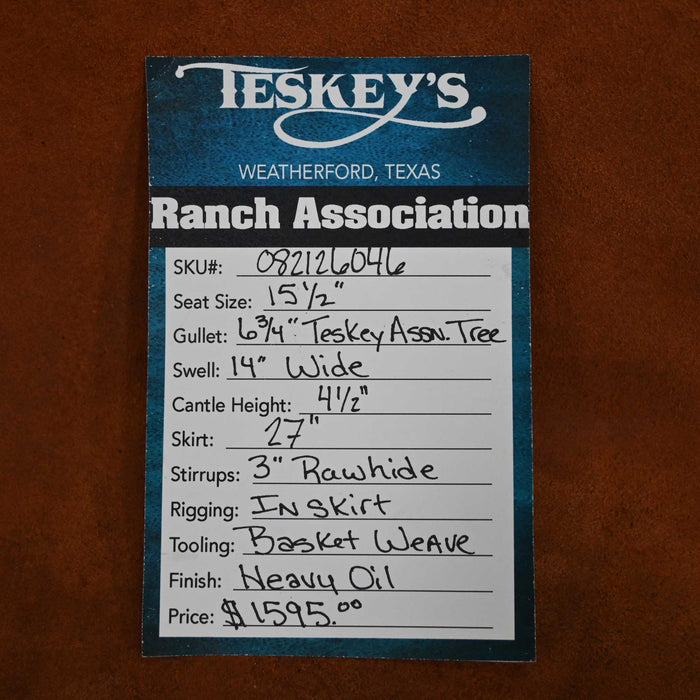 TESKEY'S
WEATHERFORD, TEXAS
Ranch Association
SKU#: 082126046
Seat Size: 15 1/2"
Gullet: 6 3/4" Teskey Assn. Tree
Swell: 14" Wide
Cantle Height: 4 1/2"
Skirt: 27"
Stirrups: 3" Rawhide
Rigging: In Skirt
Tooling: Basket Weave
Finish: Heavy Oil
Price: $1595.00